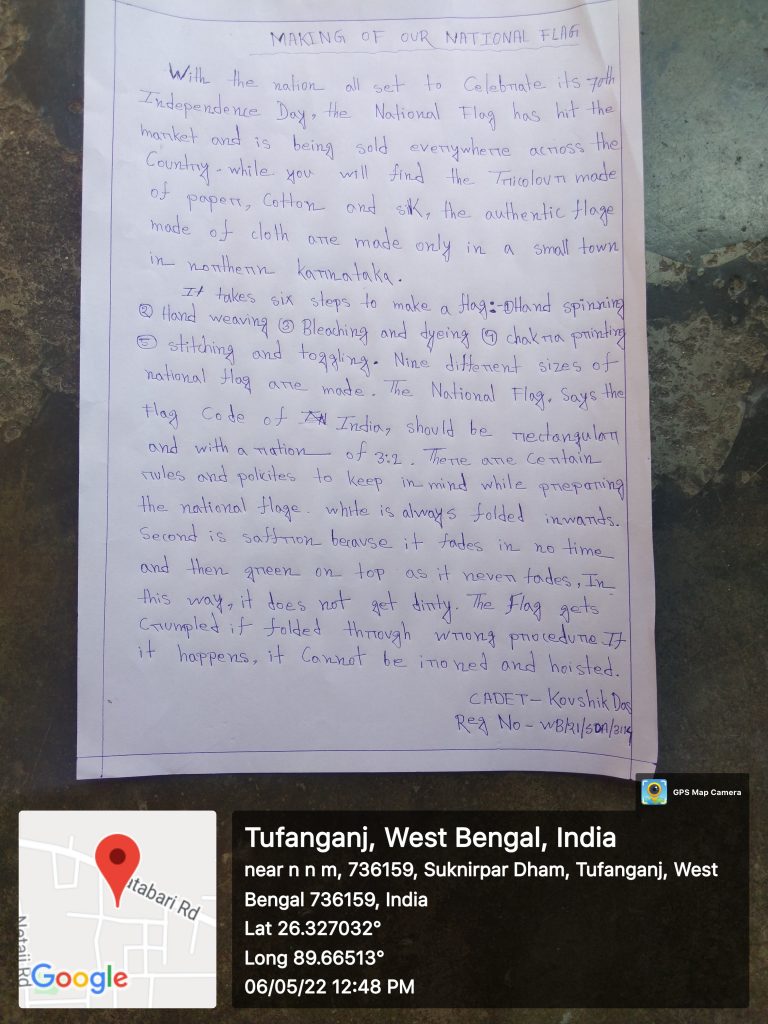 MAKING OF OUR NATIONAL FLAG
With the nation all set to Celebrate its 70th
Independence Day, the National Flag has hit the
market and is being sold everywhere across the
Country. while you will find the Tricolour made
of paper, Cotton and silk, the authentic flage
made of cloth are made only in a small town
in northern karnataka.
It takes six steps to make a flag:- ① Hand spinning
② Hand weaving ③ Bleaching and dyeing ④ chakra printing
⑤ stitching and toggling. Nine different sizes of
national flag are made. The National Flag, Says the
Flag Code of India, should be rectangular
and with a ration of 3:2. There are Certain
rules and polkites to keep in mind while preparing
the national flage. white is always folded inwards.
Second is saffron because it fades in no time
and then green on top as it never fades, In
this way, it does not get dirty. The Flag gets
Crumpled if folded through wrong procedure If
it happens, it Cannot be ironed and hoisted.
CADET - Kovshik Das
Reg No - WB/21/SDA/
GPS Map Camera
Tufanganj, West Bengal, India
near n n m, 736159, Suknirpar Dham, Tufanganj, West
Bengal 736159, India
Lat 26.327032°
Long 89.66513°
06/05/22 12:48 PM
utabari Rd
Netaji Rd
Google